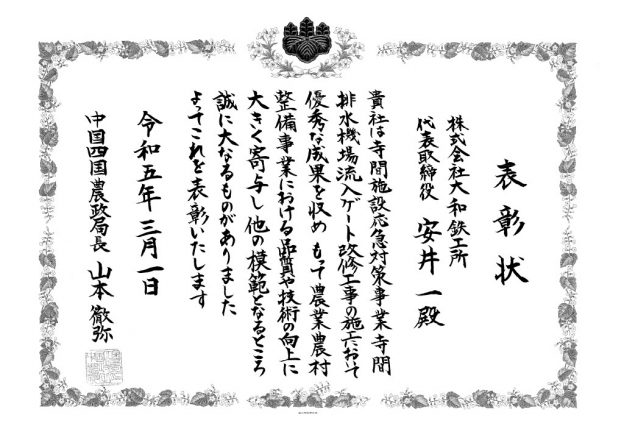 表彰状
株式会社大和鉄工所
代表取締役 安井一殿
貴社は寺間施設応急対策事業寺間
排水機場流入ゲート改修工事の施工において
優秀な成果を収めもって農業農村
整備事業における品質や技術の向上に
大きく寄与し他の模範となるところ
誠に大なるものがありました
よってこれを表彰いたします
令和五年三月一日
中国四国農政局長 山本徹弥